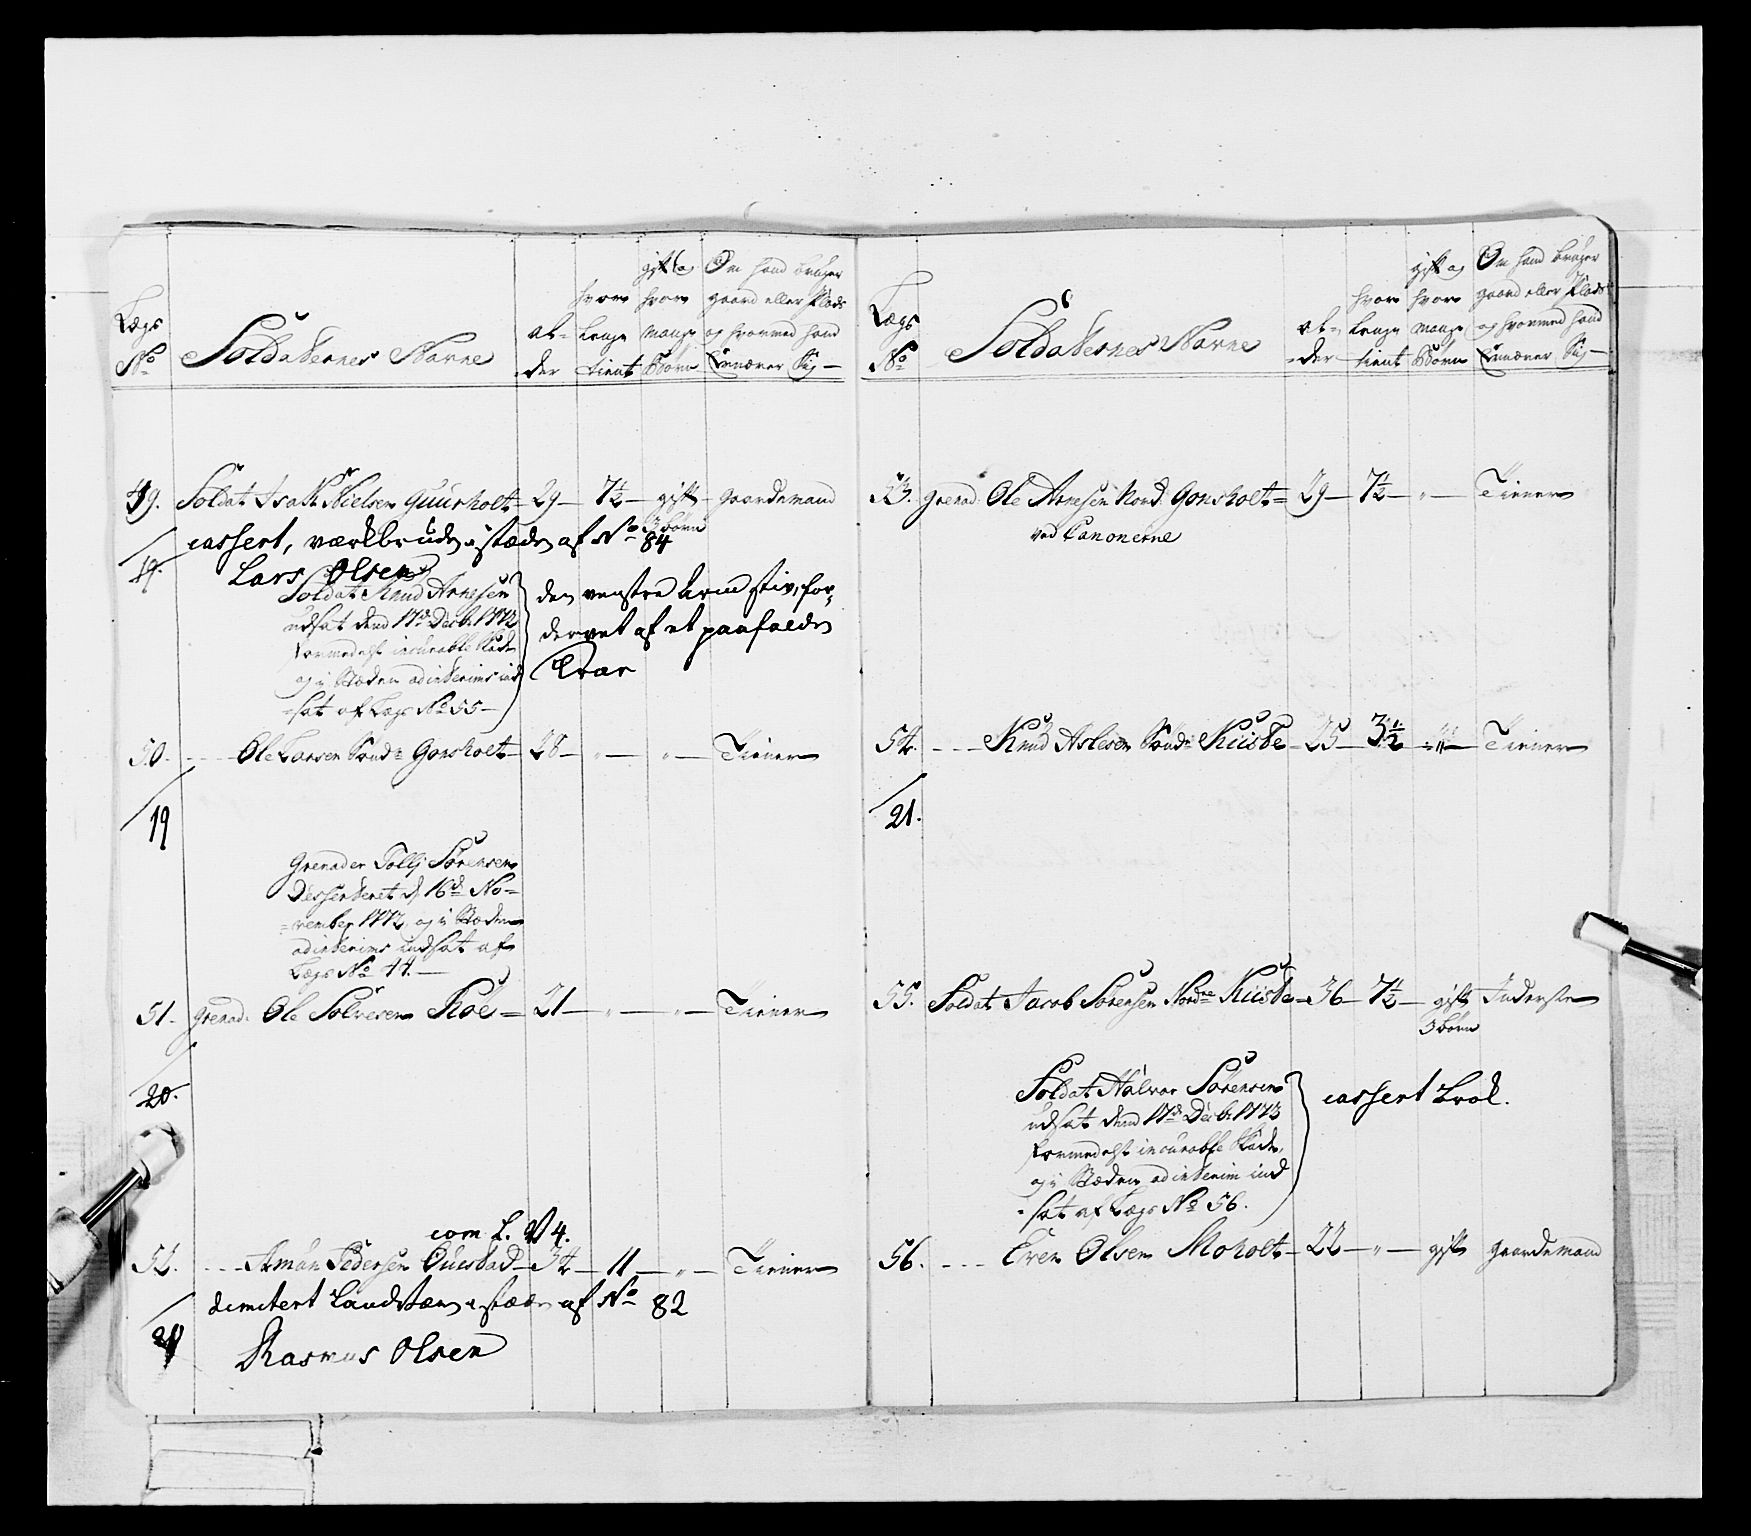 Lægs
No
Soldaternes Navne
al=
der
hvor
lenge
tient
gift og
hvor
mange
Børn
Om hand bruger
gaard eller Plads
og hvormed hand
Ernærer Sig —
49. Soldat Isak Nielsen Guursholt — 29 — 7½ — gift — gaardemand
3 børn
cassert, værkbruden i stæden af No 84
19.
Lars Olsen
Soldat Knud Arnesen
udsat dend 17de Decbr 1773
formedelst incurable Skade
og i Stæden ad interims ind
=sat af Lægs No 55 —
den venstre Arm stiv, for=
dervet af et paafalden
50. - - - Ole Larsen Sønd= Gonsholt — 28 — " — " — Tiener
19
Grenader Tollef Sørensen
Desserteret d 16de No=
=vember 1772 og i Stæden
ad interims indsat af
Lægs No 44. —
51. Grenad. Ole Solvesen Röe = 21 — " — " — Tiener
20.
com L. V 4.
52. - - - Amun Pedersen Ouestad — 34 — 11 — " — Tiener
dimitert Landværn i stæden af No 82
Rasmus Olsen
Lægs
No
Soldaternes Navne
al=
=der
hvor
lenge
tient
gift og
hvor
mange
Børn
Om hand bruger
gaard eller Plads
og hvormed hand
Ernærer Sig —
53. grenad. Ole Arnesen Nord. Gonsholt = 29 — 7½ — " — Tiener
ved Canonerne
54. - - - Knud Aslesen Sønd= Kiisbe — 25 — 3½ — " — Tiener
21.
55. Soldat Jacob Sørensen Nordre Kiisbe — 36 — 7½ — gift Inderste
3 børn
Soldat Halvor Sørensen
udsat dend 17de Decbr 1773
formedelst incurable Skade,
og i Stæden ad interim ind
=sat af Lægs No 56.
cassert
56. - - - Even Olsen Moholt — 22 — " — gift gaardemand